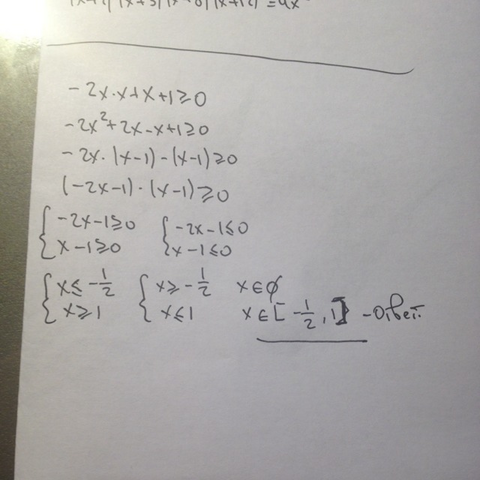 -2x·x+x+1≥0
-2x²+2x-x+1≥0
-2x·(x-1)-(x-1)≥0
(-2x-1)·(x-1)≥0
{-2x-1≥0 {-2x-1≤0
{x-1≥0 {x-1≤0
{x≤-1/2 {x≥-1/2 x∈∅
{x≥1 {x≤1 x∈[-1/2,1] -Ответ.